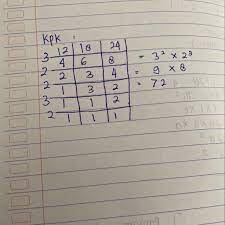 KPK :
3 12 18 24
2 4 6 8 = 3² × 2³
2 2 3 4 = 9 × 8
2 1 3 2 = 72
3 1 1 2
2 1 1 1